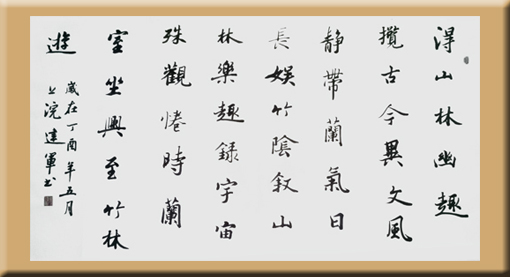 得山林幽趣
攬古今異文風
静帶蘭氣日
長娱竹陰叙山
林樂趣録宇宙
殊觀惓時蘭
室坐興至竹林
遊
歲在丁酉年五月
上浣軍书